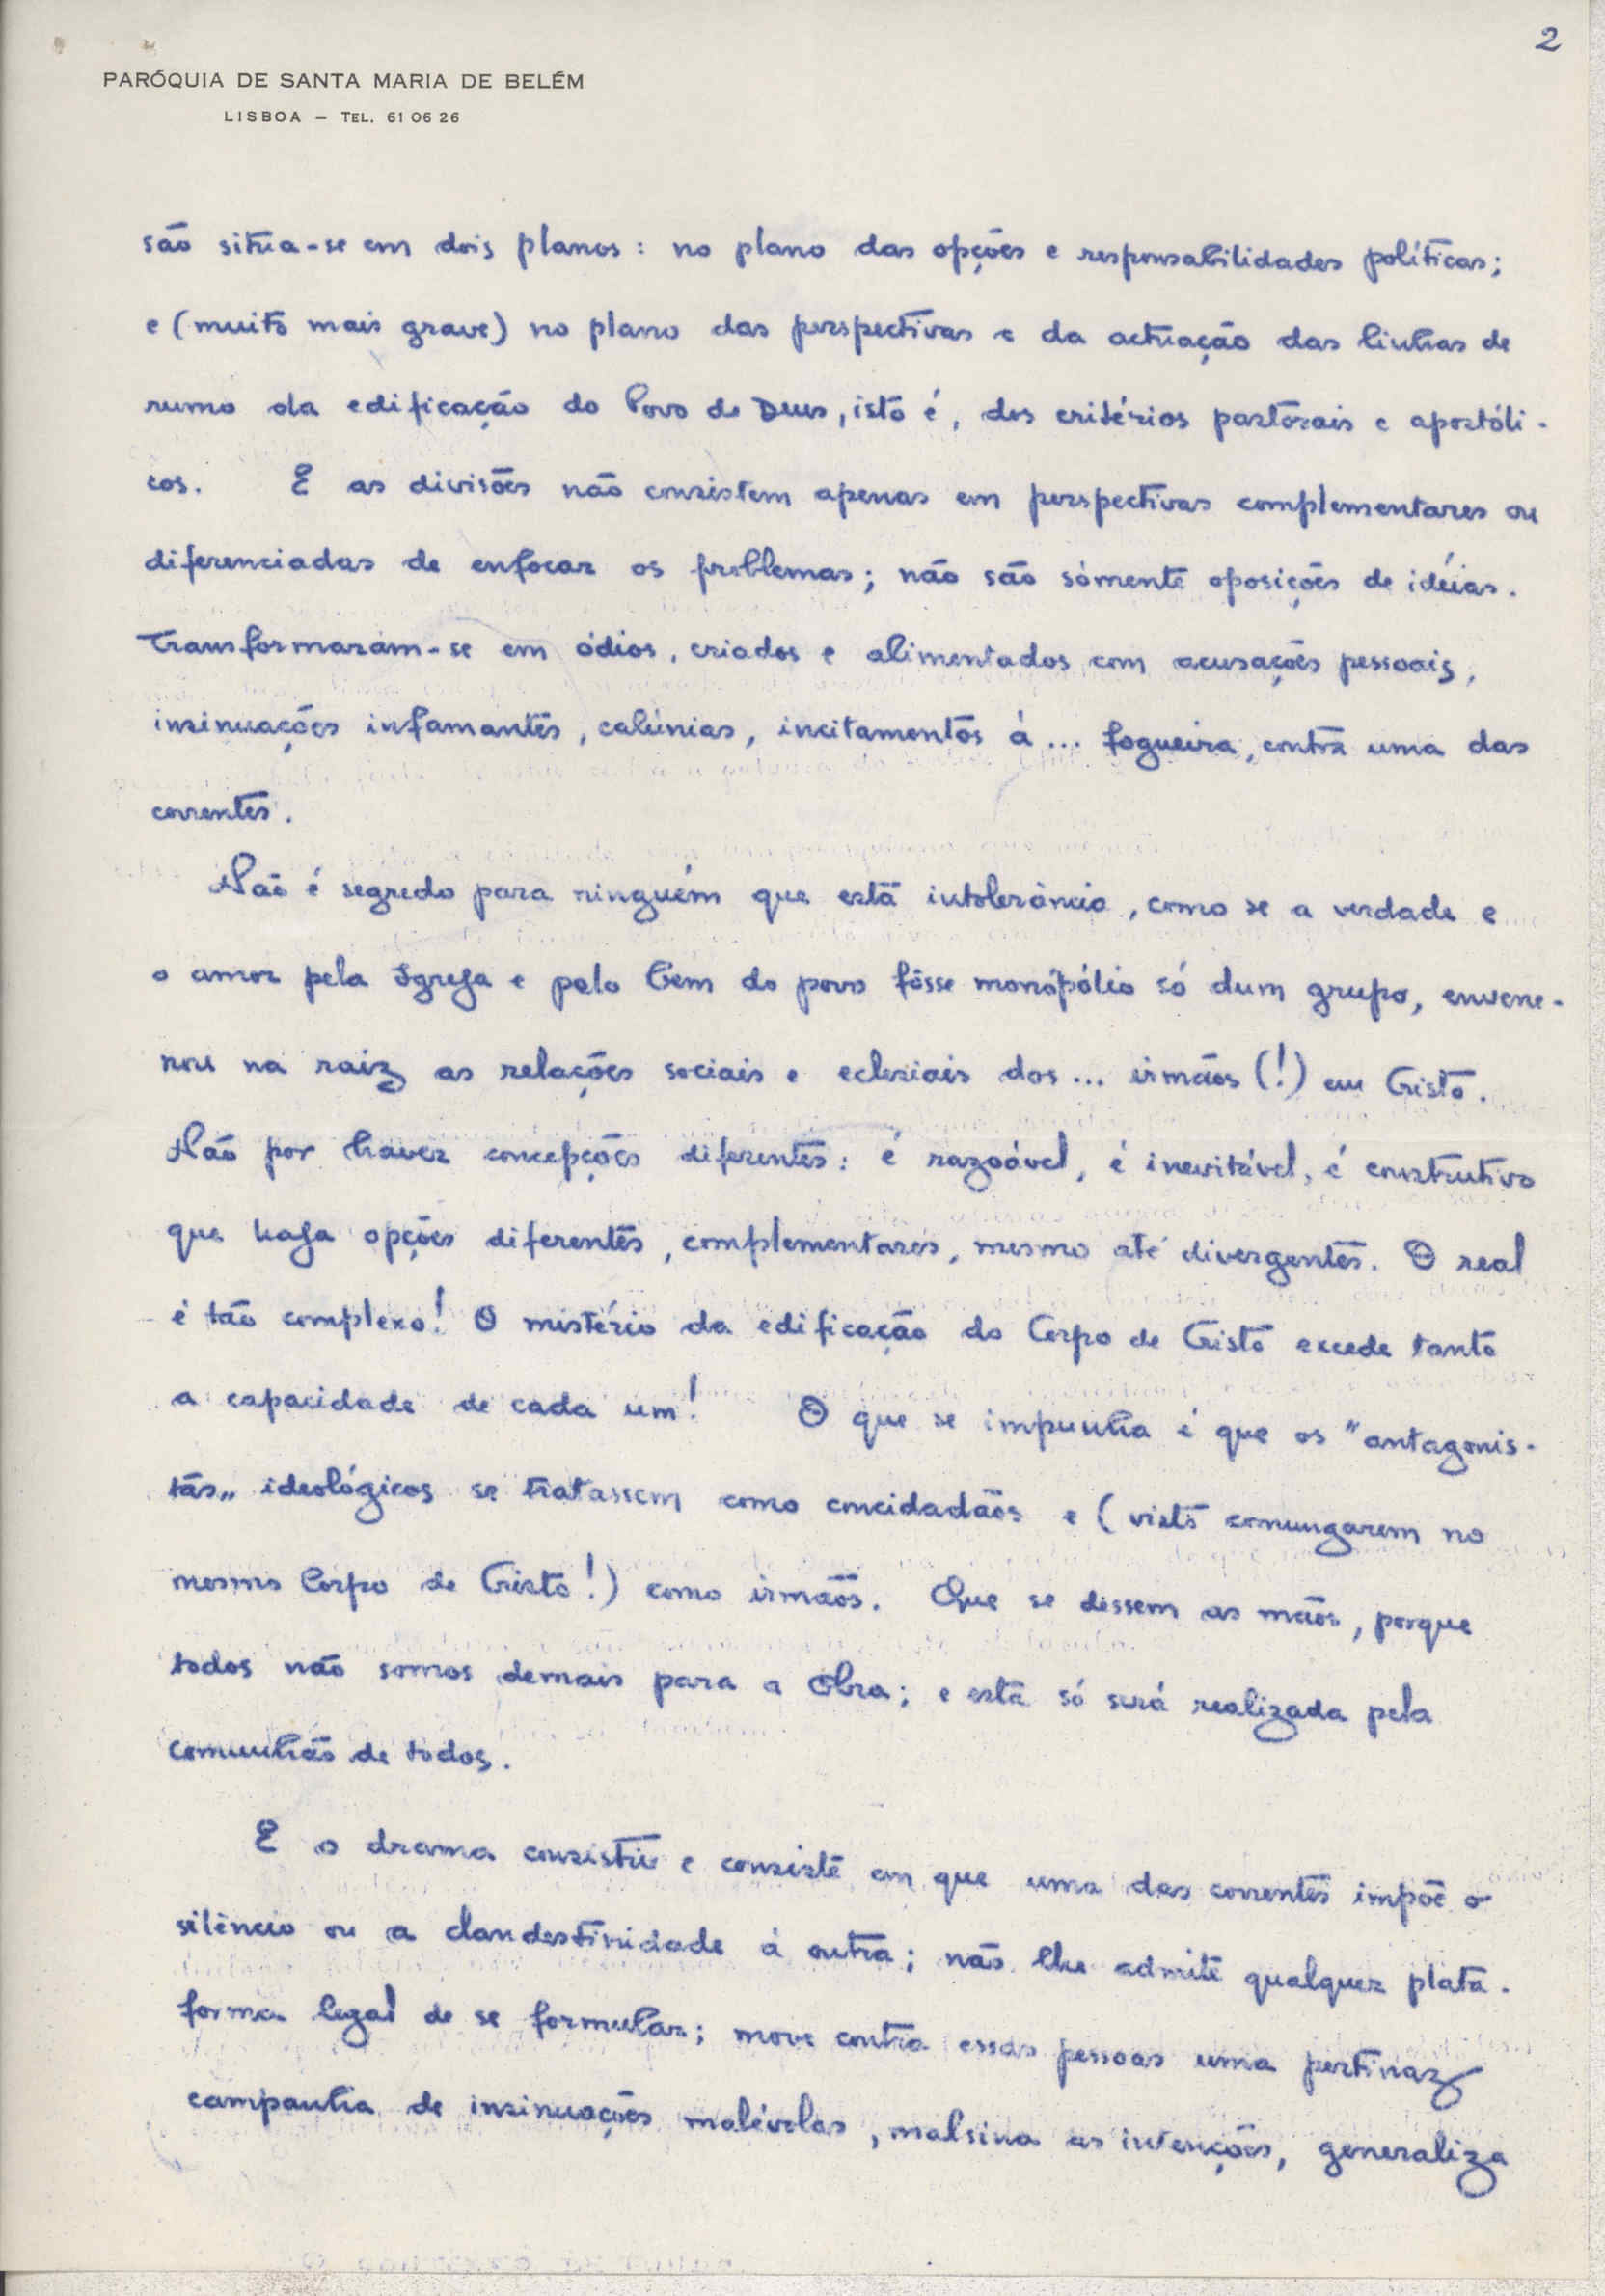 2
PARÓQUIA DE SANTA MARIA DE BELÉM
LISBOA — TEL. 61 06 26
são situa-se em dois planos: no plano das opções e responsabilidades políticas;
e (muito mais grave) no plano das perspectivas e da actuação das linhas de
rumo da edificação do Povo de Deus, isto é, dos critérios pastorais e apostóli-
cos. E as divisões não consistem apenas em perspectivas complementares ou
diferenciadas de enfocar os problemas; não são sòmente oposições de idéias.
Transformaram-se em ódios, criados e alimentados com acusações pessoais,
insinuações infamantes, calúnias, incitamentos à ... fogueira, contra uma das
correntes.
Não é segredo para ninguém que esta intolerância, como se a verdade e
o amor pela Igreja e pelo bem do povo fôsse monópólio só dum grupo, envene-
nou na raiz as relações sociais e eclesiais dos ... irmãos (!) em Cristo.
Não por haver concepções diferentes: é razoável, é inevitável, é construtivo
que haja opções diferentes, complementares, mesmo até divergentes. O real
é tão complexo! O mistério da edificação do Corpo de Cristo excede tanto
a capacidade de cada um! O que se impunha é que os "antagonis-
tas" ideológicos se tratassem como concidadãos e (visto comungarem no
mesmo Corpo de Cristo!) como irmãos. Que se dessem as mãos, porque
todos não somos demais para a Obra; e esta só será realizada pela
comunhão de todos.
E o drama consistiu e consiste em que uma das correntes impõe o
silêncio ou a clandestinidade à outra; não lhe admite qualquer plata-
forma legal de se formular; move contra essas pessoas uma pertinaz
campanha de insinuações malévolas, malsina as intenções, generaliza